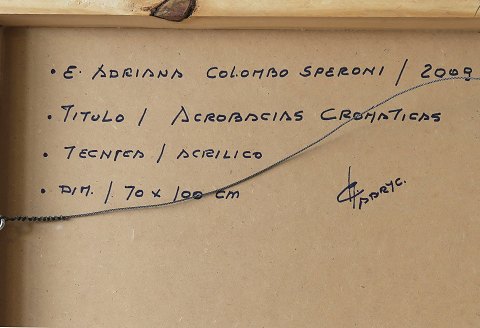 • E. ADRIANA COLOMBO SPERONI / 2009
• TITULO / ACROBACIAS CROMATICAS
• TECNICA / ACRILICO
• DIM. / 70 x 100 CM